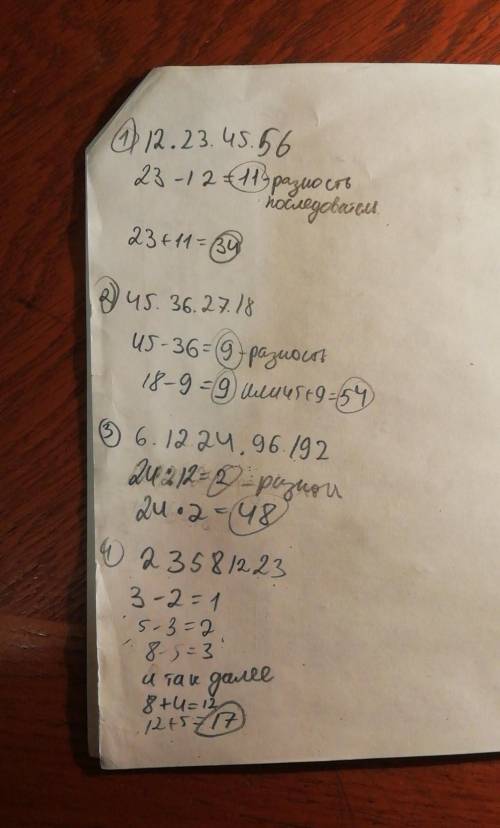 1) 12.23.45.56
23-12=11-разность
последовательн
23+11=34
2) 45.36.27.18
45-36=9-разность
18-9=9 или 45+9=54
3) 6.12 24.96.192
24:12=2-разнои
24•2=48
4) 2 3 5 8 12 23
3-2=1
5-3=2
8-5=3
и так далее
8+4=12
12+5=17